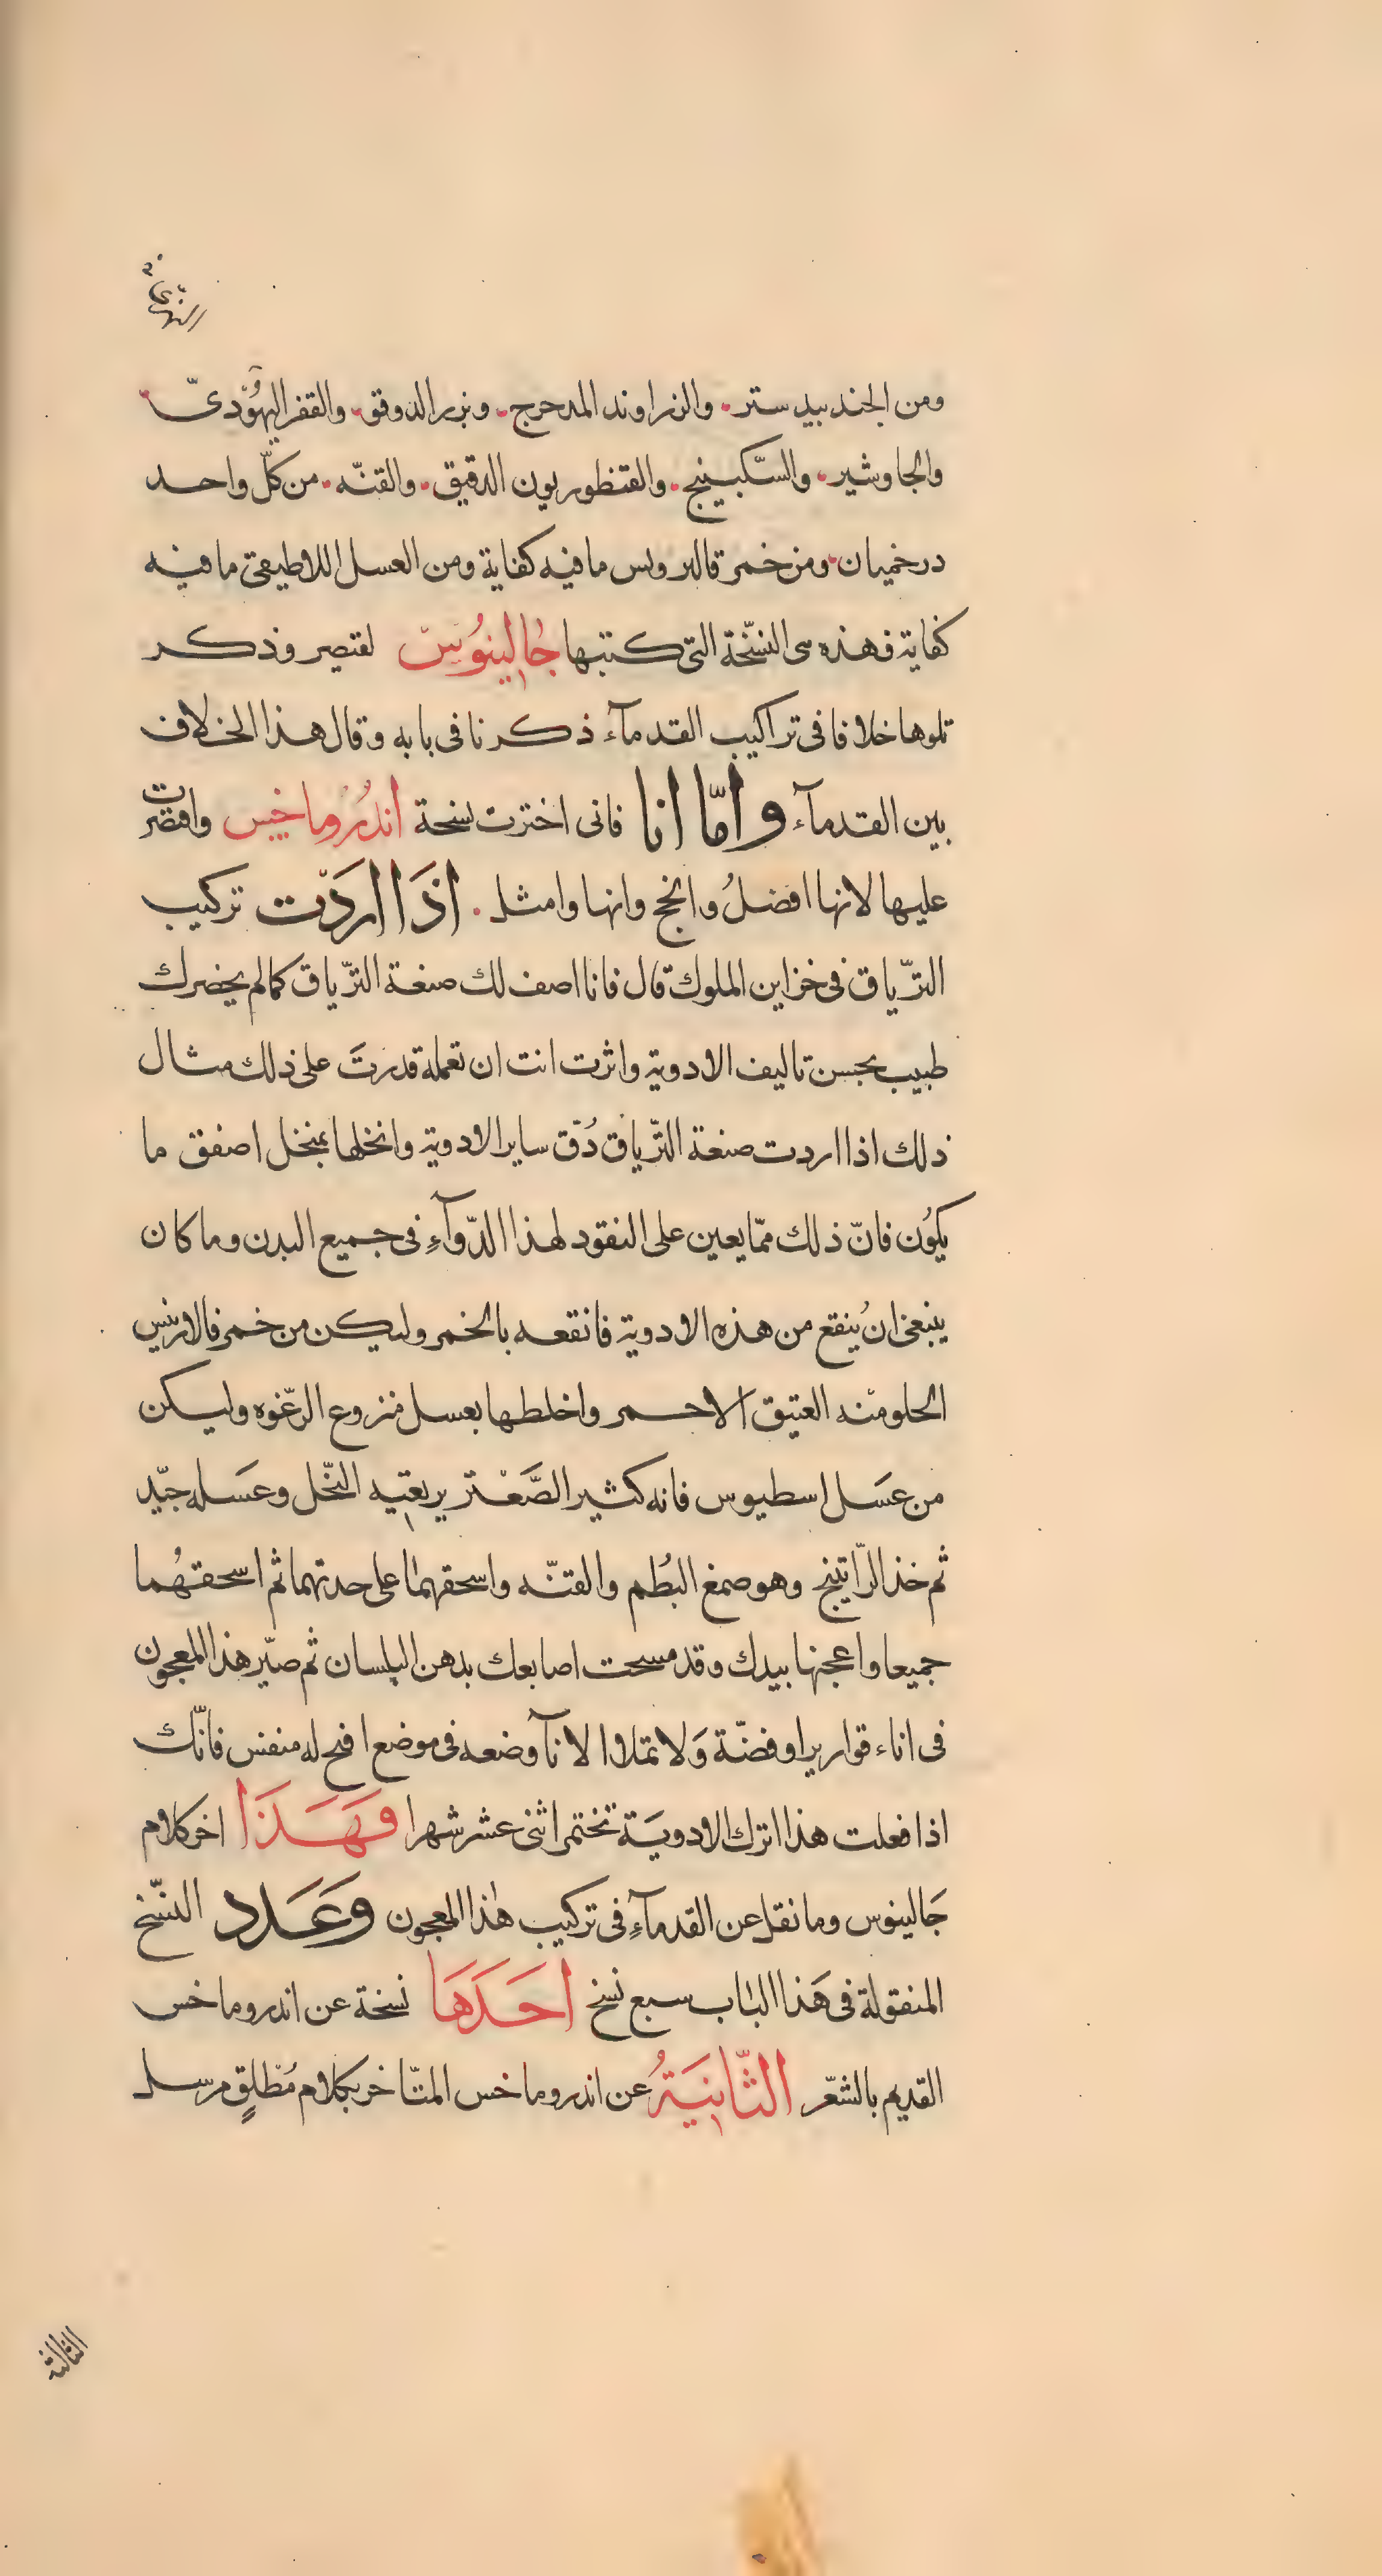 ومن الجندبيدستر والزراوند المدحرج وبزر الدوقو والقفر اليهُوديّ
والجاوشير والسّكبينج والقنطوريون الدقيق والقنّه من كلّ واحد
درخميان ومن خمر فالروس ما فيه كفاية ومن العسل اللاطيقى ما فيه
كفاية فهذه هى النسّخة التى كتبها جالينوُس لقيصر وذكر
تلوها خلافا فى تراكيب القدمآء ذكرنا فى بابه وقال هذا الخلاف
بين القدمآء وامّا انا فانى اخترت نسخة اندرُوماخيس واقتصرت
عليها لانها افضلُ وانجح وانها وامثل اذَا اردَت تركيب
الترّياق فى خزاين الملوك قال فانا اصف لك صنعة الترّياق كما لم يحضرك
طبيب يحسن تاليف الادوية واثرت انت ان تعمله قدرتَ على ذلك مثال
ذلك اذا اردت صنعة الترّياق دُقّ ساير الادوية وانخلها بمنخل اصفق ما
يكوُن فانّ ذلك ممّا يعين على النفود لهذا الدّوآءِ فى جميع البدن وما كان
ينبغى ان يُنقع من هذه الادوية فانقعه بالخمر وليكن من خمر فالارنيس
الحلو منه العتيق الاحمر واخلطها بعسل منزوع الرّغوه وليكن
من عسَل اسطيوس فانه كثير الصَّعْتر يرتعيه النّحل وعسَله جيّد
ثم خذ الرّاتينج وهو صمغ البُطم والقنّه واسحقهما على حدتهما ثم اسحقهُما
جميعا واعجنها بيدك وقد مسحت اصابعك بدهن البلسان ثم صيّر هذا المعجون
فى اناء قوارير او فضّة وَلا تملاوا الانآ وضعه فى موضع افتح له منفس فانّك
اذا فعلت هذا اترك الادويَة تختمر اثنى عشر شهرا فهَذَا اخر كلام
جَالينوس وما نقل عن القدمآءِ فى تركيب هذا المعجون وعَدد النسّخ
المنقولة فى هَذا الباب سبع نسخ احَدَهَا نسخة عن اندروماخس
القديم بالشعّر الثّانيَةُ عن اندروماخس المتّاخر بكلام مُطلقٍ مرسل
الثالثة